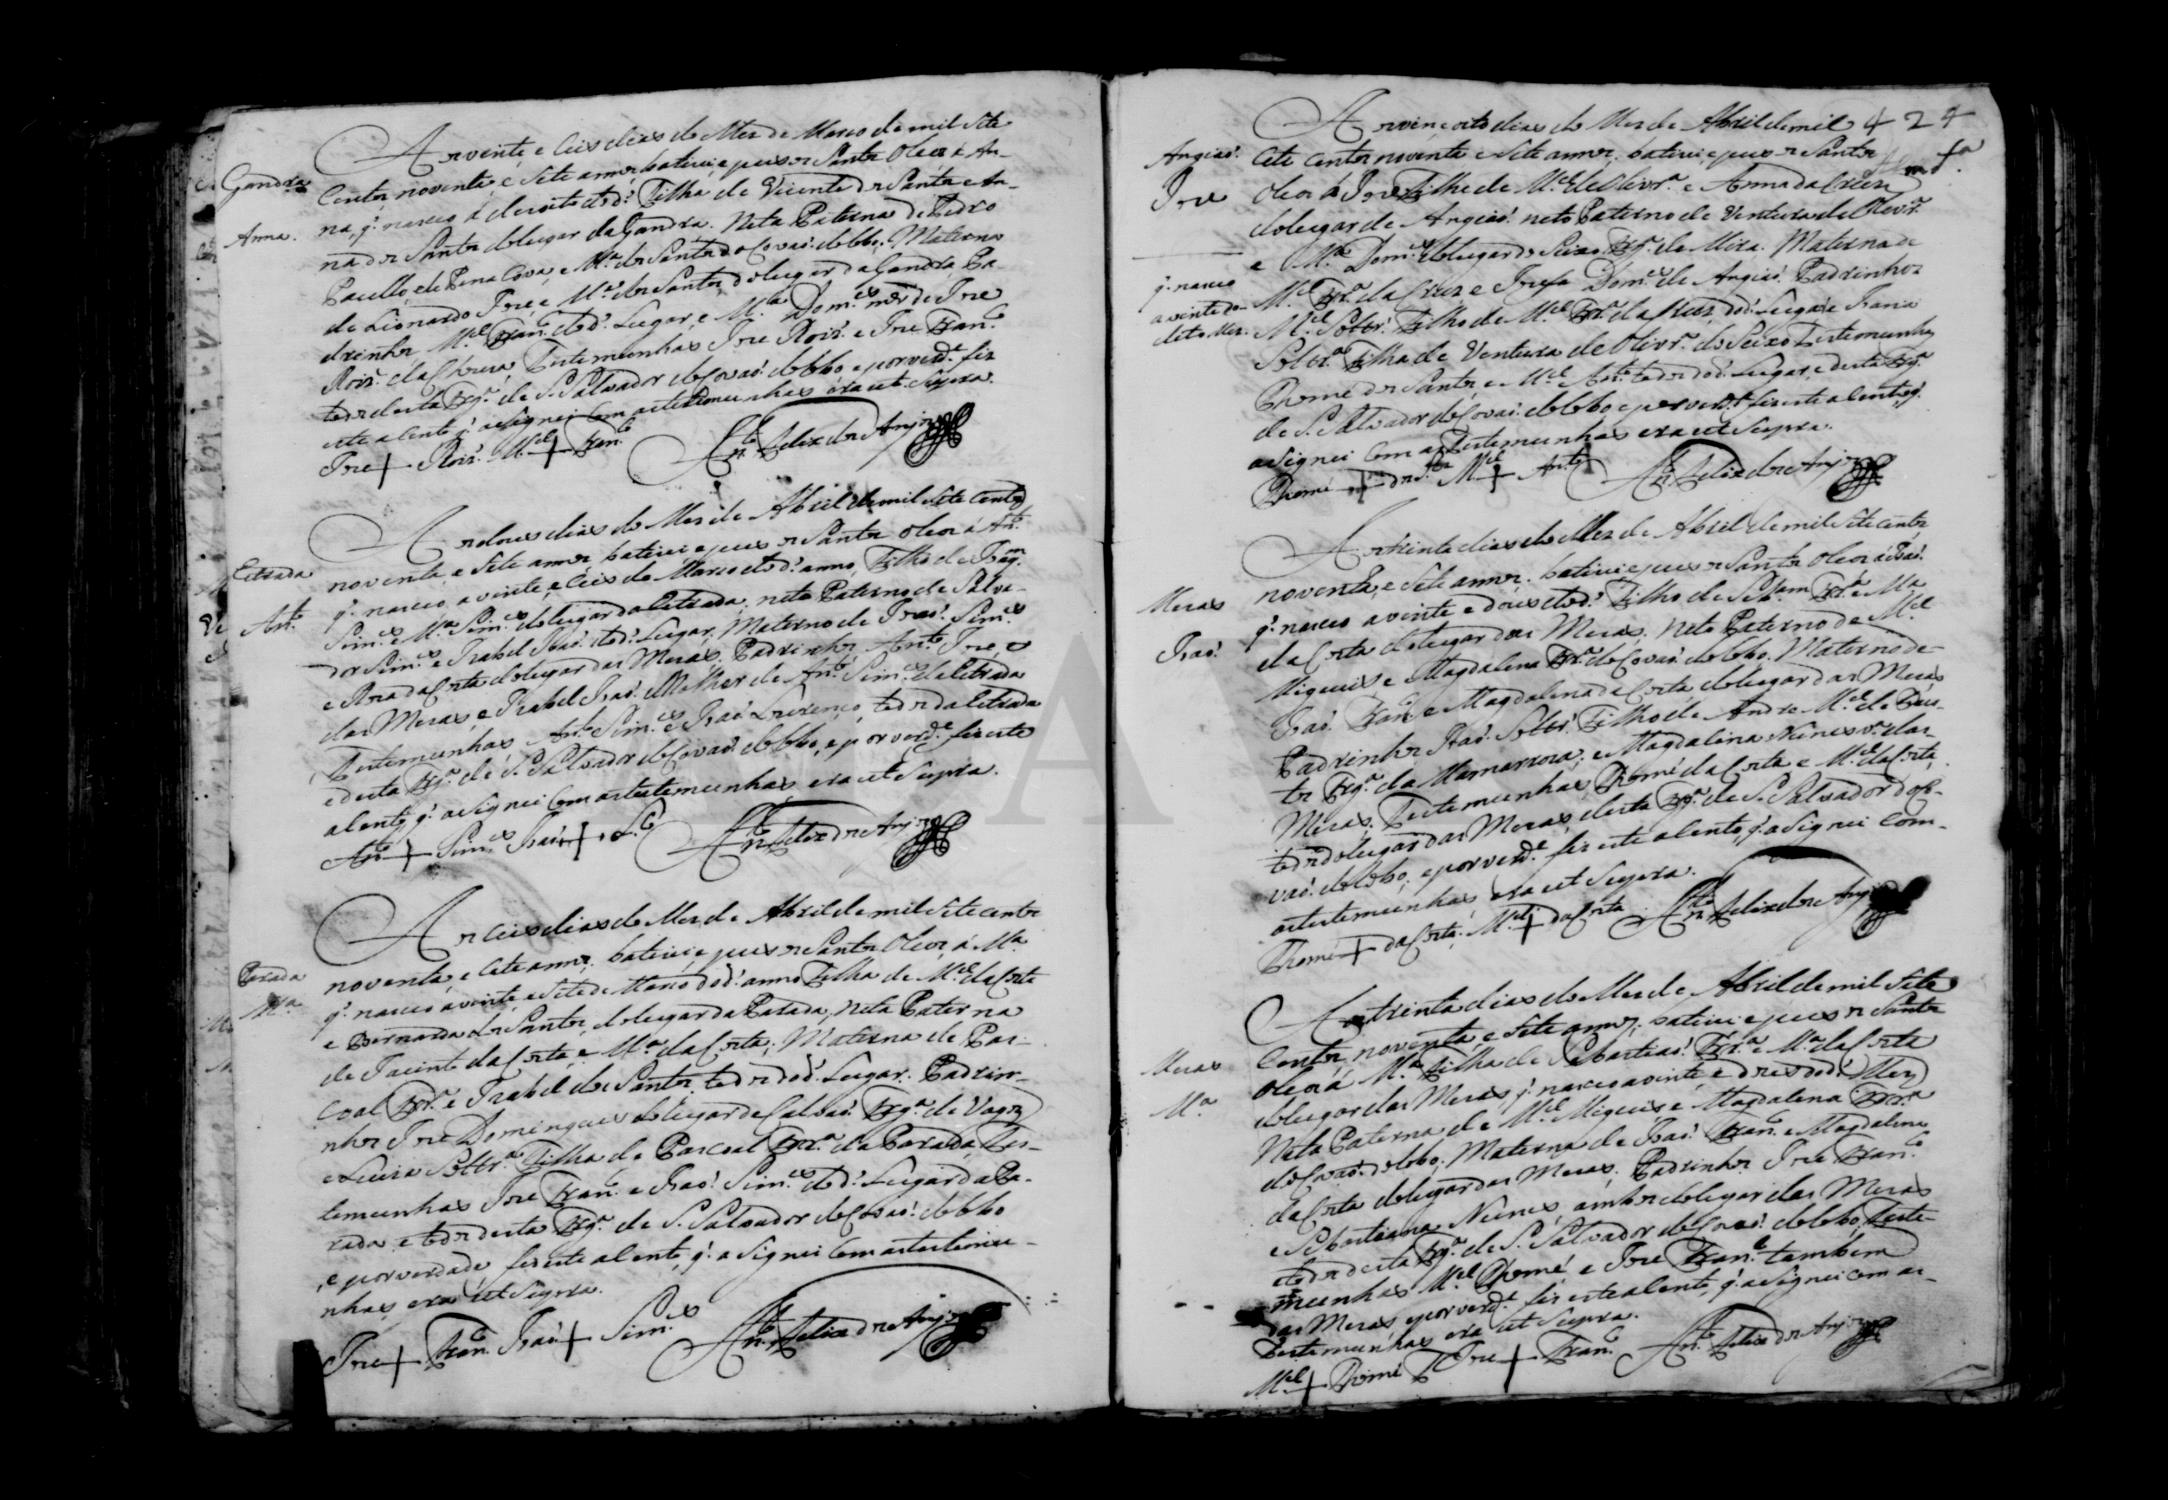 Gandra
Anna.
Aos vinte e seis dias do Mes de Março de mil sete
Centos noventa, e sete annos, batizei, e pus os Santos Oleos á An-
na, q. nasceo á dezoito do d.º Filha de Vicente dos Santos e An-
na dos Santos do lugar da Gandra. Neta Paterna de Pedro
de Penacova, e M.ª dos Santos do Covaõ do lobo, Materna
de Lionardo Joze, e M.ª dos Santos do lugar da Gandra Pa-
drinhos M.el Fran.co do d.º Lugar, e M.ª Dom.es m.er de Joze
Roiz. Testemunhas Joze Roiz. e Joze Fran.co
todos desta Frg.ª de S. Salvador do Covaõ do lobo e por verd.e fiz
este asento q. asignei com as testemunhas era ut Supra.
Joze + Roiz. M.el + Fran.co An.to Felix dos Anjos
Estrada
Ant.º
Aos dous dias do Mes de Abril de mil Sete Centos
noventa, e Sete annos, batizei e pus os Santos Oleos á Ant.º
q. nasceo a vinte e seis de Março do d.º anno, Filho de
Sim.es e M.ª Sim.es do lugar da Estrada, neto Paterno de Salva-
dor Sim.es e Izabel Joaõ do d.º Lugar. Materno de Joaõ Sim.es
e Roza da Costa do lugar das Mesas. Padrinhos Ant.º Joze
das Mesas, e Izabel Joaõ Mulher de Ant.º Sim.es da Estrada
Testemunhas Ant.º Sim.es e Joaõ Lourenço, todos da Estrada
e desta Frg.ª de S. Salvador do Covaõ do lobo, e por verd.e fiz este
asento, q. asignei Com as testemunhas, era ut Supra.
Ant.º + Sim.es Joaõ + L.ço An.to Felix dos Anjos
Parada
M.ª
Aos seis dias do Mes de Abril de mil Sete centos
noventa, e Sete annos, batizei e pus os Santos Oleos, á M.ª
q. nasceo a vinte, e Sete de Março do d.º anno Filha de M.el da Costa
e Bernarda dos Santos, do lugar da Parada, Neta Paterna
de Jacinto da Costa, e M.ª da Costa; Materna de Pas-
coal Frr.ª e Izabel dos Santos, todos do d.º Lugar. Padri-
nhos Joze Domingues do lugar de Calvaõ Frg.ª de Vagos
e Luiza Soltr.ª Filha de Pascoal Frr.ª da Parada, Tes-
temunhas Joze Fran.co e Joaõ Sim.es do d.º Lugar da Pa-
rada, e todos desta Frg.ª de S. Salvador do Covaõ do lobo
e por verdade fiz este asento, q. asignei Com as testemu-
nhas, era ut Supra.
Joze + Fran.co Joaõ + Sim.es An.to Felix dos Anjos
424
Angiaõ.
Joze
q. nasceo
a vinte do
dito Mes.
Aos vinte e oito dias do Mes de Abril de mil
Sete Centos noventa e Sete annos, batizei, e pus os Santos
Oleos á Joze Filho de M.el de Olivr.ª e Anna da Cruz
do lugar de Angiaõ. neto Paterno de Ventura de Olivr.ª
e M.ª Dom.es do lugar do Seixo Frg.ª de Mira. Materno de
M.el Frr.ª da Cruz e Jozefa Dom.es de Angiaõ. Padrinhos
M.el Soltr.º Filho de M.el Frr.ª da Cruz, do d.º Lugar e Joana
Soltr.ª Filha de Ventura de Olivr.ª do Seixo Testemunhas
Thomé dos Santos, e M.el Ant.º todos do d.º Lugar, e desta Frg.ª
de S. Salvador do Covaõ do lobo e por verd.e fiz este asento, q.
asignei Com as Testemunhas era ut Supra.
Thomé + dos S.tos M.el + Ant.º An.to Felix dos Anjos
Mesas
Joaõ.
Aos trinta dias do Mes de Abril de mil Sete centos
noventa, e Sete annos, batizei e pus os Santos Oleos á Joaõ.
q. nasceo a vinte e dous do d.º Filho de Seb.am Frr.ª e M.ª
da Costa do lugar das Mesas. Neto Paterno de M.el
Migueis, e Magdalena Frr.ª do Covaõ do lobo. Materno de
Joaõ Fran.co e Magdalena da Costa, do lugar das Mesas
Padrinhos Joaõ Soltr.º Filho de Andre M.el de
Frg.ª da Mamarroza, e Magdalena Nunes v.ª das
Mesas. Testemunhas Thomé da Costa e M.el da Costa,
todos do lugar das Mesas, desta Frg.ª de S. Salvador do Co-
vaõ do lobo, e por verd.e fiz este asento, q. asignei Com
as testemunhas, era ut Supra.
Thomé + da Costa, M.el + da Costa An.to Felix dos Anjos
Mesas
M.ª
Aos trinta dias do Mes de Abril de mil Sete
Centos, noventa, e Sete annos, batizei e pus os Santos
Oleos á M.ª Filha de Sebastiaõ Frr.ª e M.ª da Costa
do lugar das Mesas q. nasceo a vinte, e dous do d.º Mes
Neta Paterna de M.el Migueis e Magdalena Frr.ª
do Covaõ do lobo, Materna de Joaõ Fran.co e Magdalena
da Costa do lugar das Mesas, Padrinhos Joze Fran.co
e Sebastiana Nunes, ambos do lugar das Mesas
e todos desta Frg.ª de S. Salvador do Covaõ do lobo, Teste-
munhas M.el Thomé e Joze Fran.co tambem
das Mesas e por verd.e fiz este asento, q. asignei com as
testemunhas era ut Supra.
M.el + Thomé Joze + Fran.co An.to Felix dos Anjos